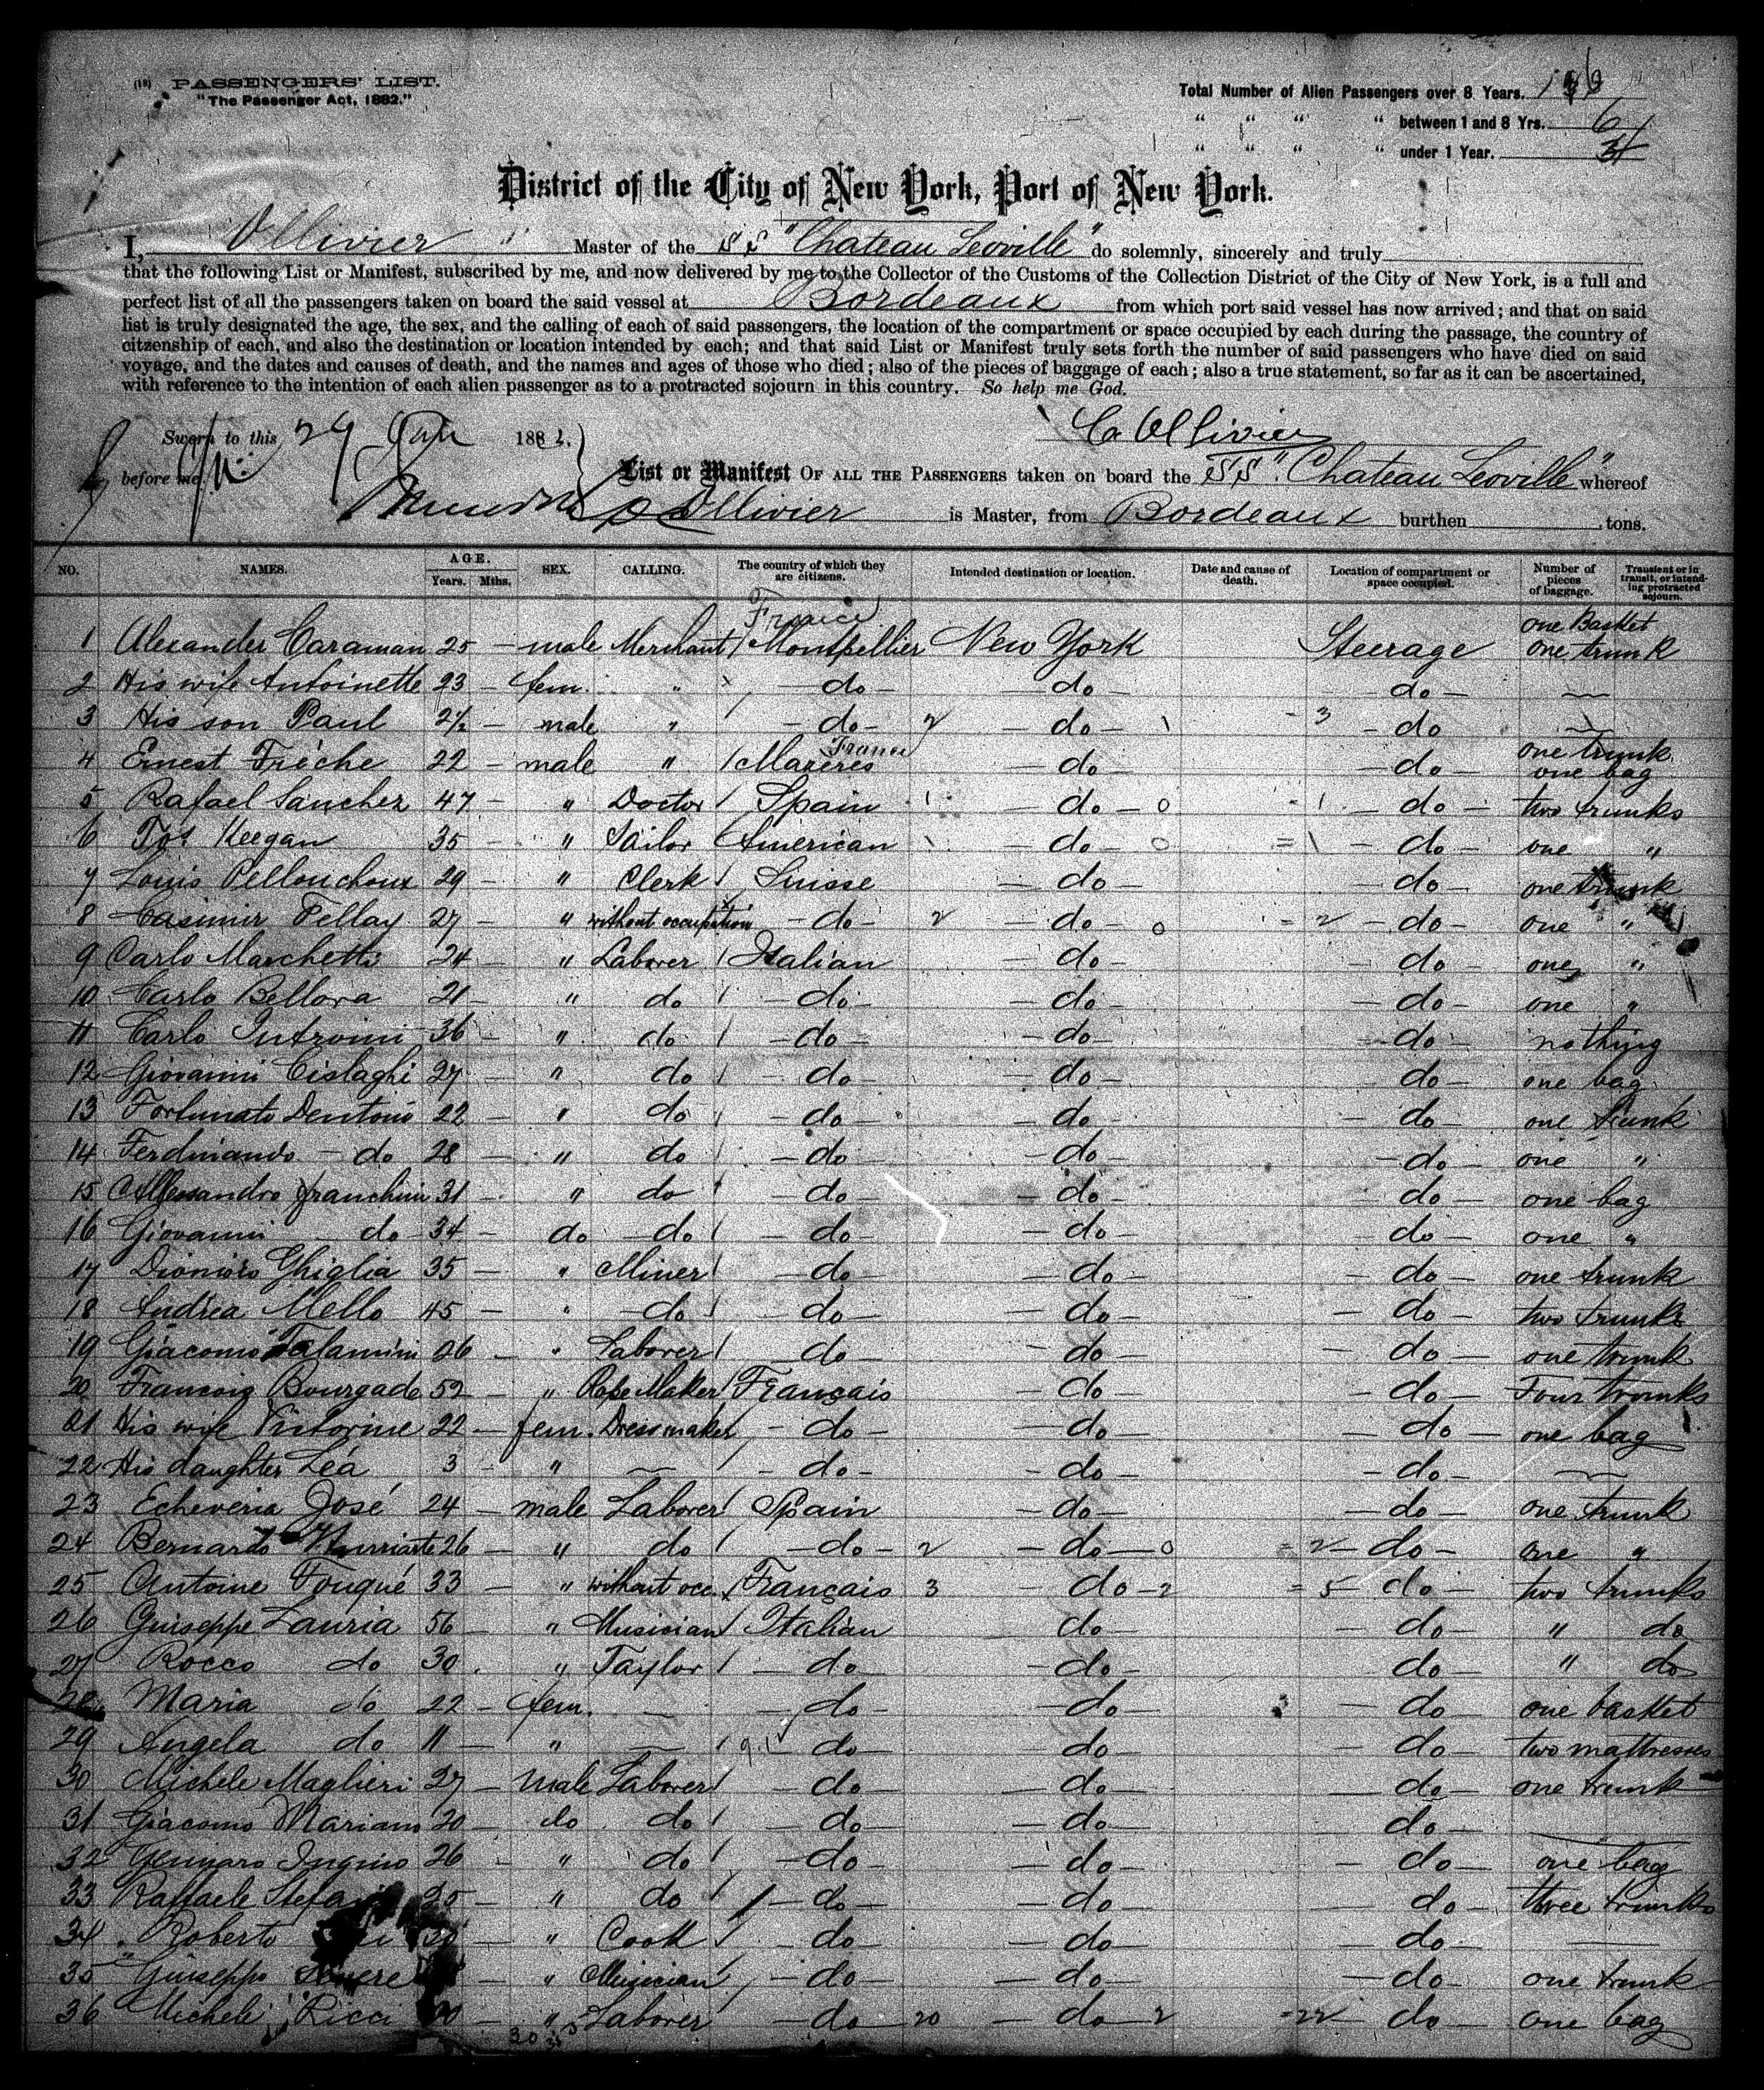 (18) PASSENGERS' LIST.
"The Passenger Act, 1882."
Total Number of Alien Passengers over 8 Years.
" " " " between 1 and 8 Yrs. 6
" " " " under 1 Year.
District of the City of New York, Port of New York.
I, Ollivier " Master of the SS "Chateau Leoville" do solemnly, sincerely and truly
that the following List or Manifest, subscribed by me, and now delivered by me to the Collector of the Customs of the Collection District of the City of New York, is a full and
perfect list of all the passengers taken on board the said vessel at Bordeaux from which port said vessel has now arrived; and that on said
list is truly designated the age, the sex, and the calling of each of said passengers, the location of the compartment or space occupied by each during the passage, the country of
citzenship of each, and also the destination or location intended by each; and that said List or Manifest truly sets forth the number of said passengers who have died on said
voyage, and the dates and causes of death, and the names and ages of those who died; also of the pieces of baggage of each; also a true statement, so far as it can be ascertained,
with reference to the intention of each alien passenger as to a protracted sojourn in this country. So help me God.
Sworn to this 29 188 C. Ollivier
before me.
List or Manifest OF ALL THE PASSENGERS taken on board the SS. "Chateau Leoville" whereof
Ollivier is Master, from Bordeaux burthen tons.
NO. NAMES. AGE. Years. Mths. SEX. CALLING. The country of which they are citizens. Intended destination or location. Date and cause of death. Location of compartment or space occupied. Number of pieces of baggage. Transient or in transit, or intending protracted sojourn.
1 Alexander Caraman 25 - male Merchant / France Montpellier New York Steerage one Basket one trunk
2 His wife Antoinette 23 - fem. " - do - - do - - do - -
3 His son Paul 2½ - male " - do - 2 - do - 1 - 3 - do -
4 Ernest Frèche 22 - male " / Mazères France - do - - do - one trunk one bag
5 Rafael Sanchez 47 - " Doctor / Spain 1 - do - 0 - 1 - do - two trunks
6 Keegan 35 - " Sailor American 1 - do - 0 = 1 - do - one "
7 Louis Pellouchoux 29 - " Clerk / Suisse - do - - do - one trunk
8 Casimir Fellay 27 - " without occupation - do - 2 - do - 0 = 2 - do - one "
9 Carlo Marchetti 24 - " Laborer / Italian - do - do - one "
10 Carlo Bellora 21 - " do / - do - - do - - do - one "
11 Carlo Introini 36 - " do / - do - - do - - do - nothing
12 Giovanni Cislaghi 27 - " do / - do - - do - do - one bag
13 Fortunato Dentons 22 - " do / - do - - do - - do - one trunk
14 Ferdinando - do 28 - " do / - do - - do - - do - one "
15 Allessandro Franchini 31 - " do / - do - - do - do - one bag
16 Giovanni - do - 34 - do - do / - do - - do - do - one "
17 Dionisio Ghiglia 35 - " Miner / - do - - do - - do - one trunk
18 Andrea Mello 45 - " - do / - do - - do - - do - two trunks
19 Giacomo Talamini 26 - " Laborer / - do - - do - - do - one trunk
20 Francois Bourgade 52 - " Maker / Français - do - - do - Four trunks
21 His wife Victorine 22 - fem. Dressmaker / - do - - do - - do - one bag
22 His daughter Léa 3 - " - - do - - do - - do - -
23 Echeveria José 24 - male Laborer / Spain - do - - do - one trunk
24 Bernardo 26 - " do / - do - 2 - do - 0 = 2 - do - one "
25 Antoine Fouqué 33 - " without occ. / Français 3 - do - 2 = 5 - do - two trunks
26 Guiseppe Lauria 56 - " Musician / Italian do - - do - " do
27 Rocco do 30 . " Taylor / - do - - do - do - " do
28 Maria do 22 - fem. - - do - - do - - do - one basket
29 Angela do 11 - " - / do - - do - - do - two mattresses
30 Michele Maglieri 27 - male Laborer / - do - - do - - do - one trunk
31 Giacomo Mariano 20 - do do / - do - - do - do - -
32 Gennaro Ingino 26 - " do / - do - - do - - do - one bag
33 Raffaele 25 - " do / - do - - do - - do - three trunks
34 Roberto - " Cook / - do - - do - - do - -
35 Guiseppe - " Musician / - do - - do - - do - one trunk
36 Michele Ricci - " Laborer - do - 20 - do - 2 = 22 - do - one bag
30